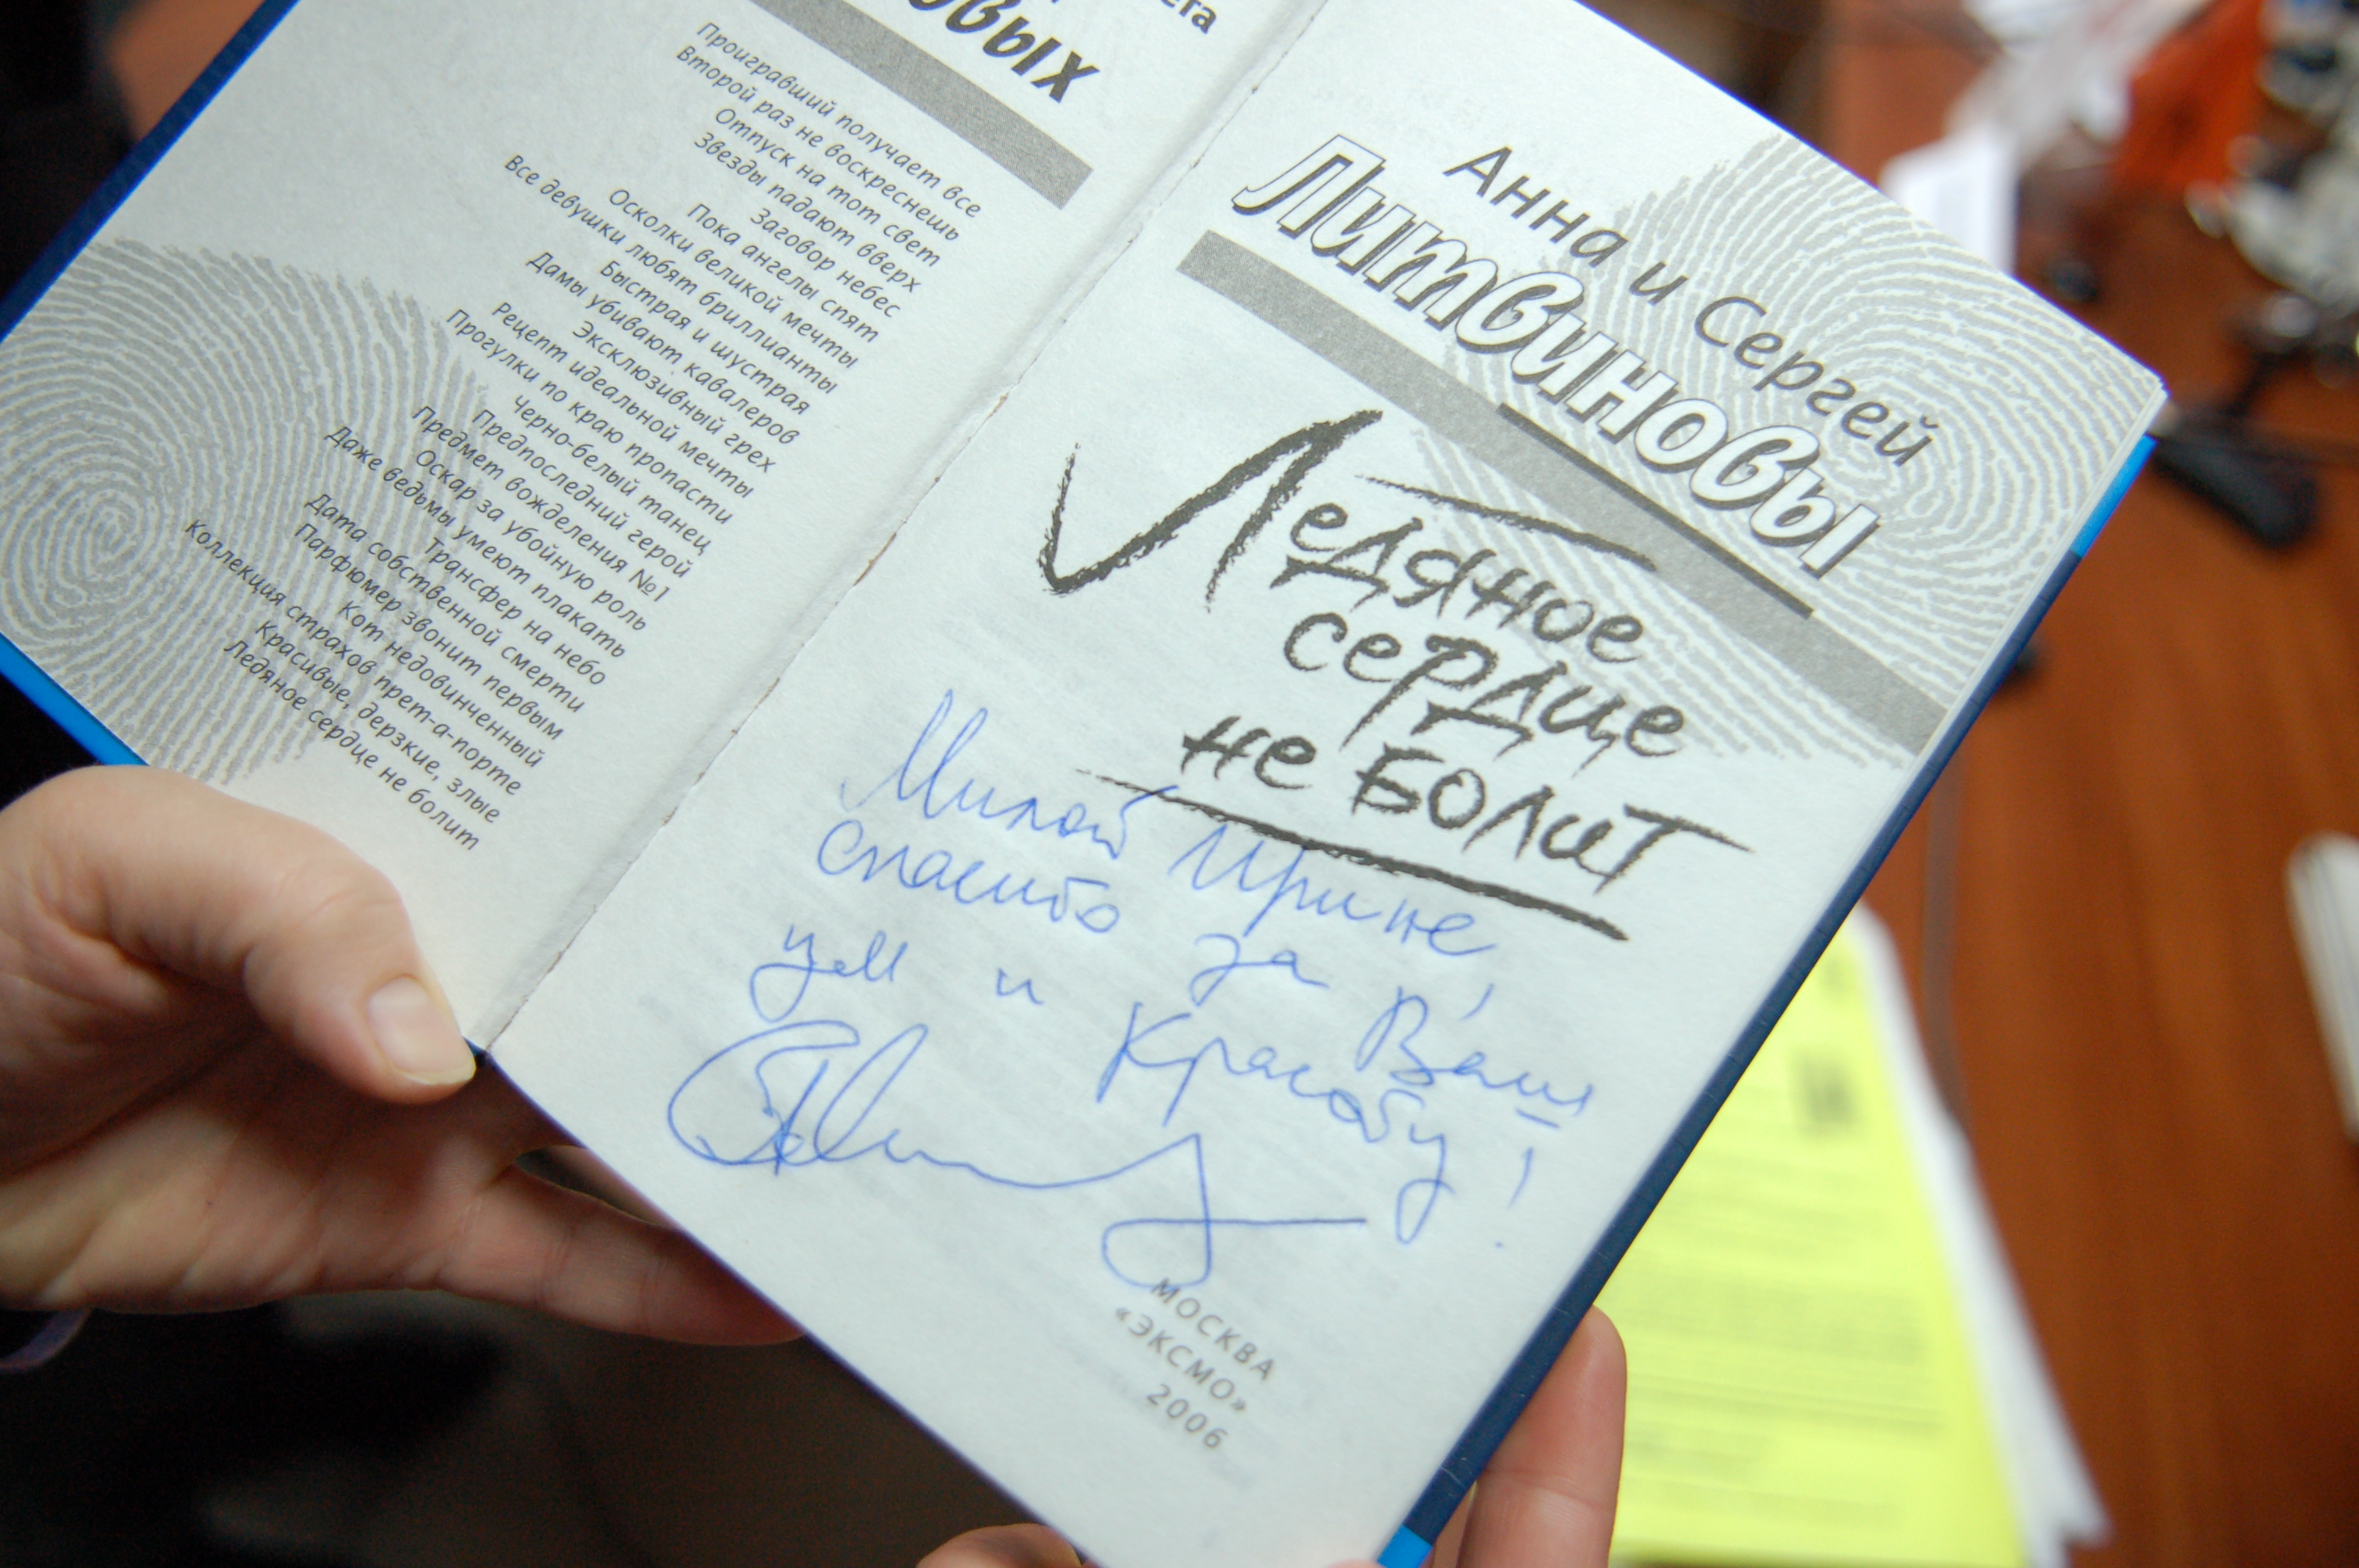 овых
Проигравший получает все
Второй раз не воскреснешь
Отпуск на тот свет
Звезды падают вверх
Заговор небес
Пока ангелы спят
Осколки великой мечты
Все девушки любят бриллианты
Быстрая и шустрая
Дамы убивают кавалеров
Эксклюзивный грех
Рецепт идеальной мечты
Прогулки по краю пропасти
Черно-белый танец
Предпоследний герой
Предмет вожделения №1
Оскар за убойную роль
Даже ведьмы умеют плакать
Трансфер на небо
Дата собственной смерти
Парфюмер звонит первым
Кот недовинченный
Коллекция страхов прет-а-порте
Красивые, дерзкие, злые
Ледяное сердце не болит
Анна и Сергей
Литвиновы
Ледяное
сердце
не болит
Милой Ирине,
спасибо за Ваш
ум и красоту!
МОСКВА
«ЭКСМО»
2006